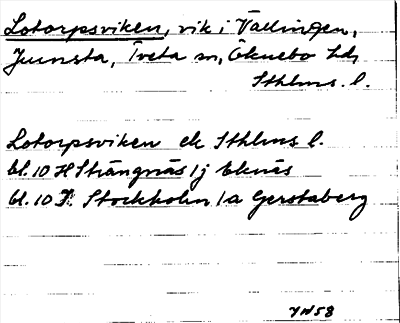 Lotorpsviken, vik i Vallingen,
Jumsta, Tveta sn, Öknebo hd,
Sthlms. l.
Lotorpsviken ek Sthlms l.
bl. 10 H Strängnäs 1j Eknäs
bl. 10 I Stockholm 1a Gerstaberg
YN58